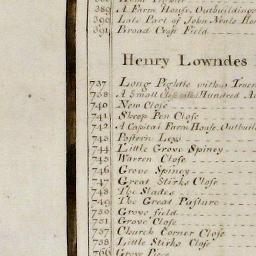 389 A Farm House, Outbuildings
390 Late Part of John Neals Ho
391 Broad Croft Field
Henry Lowndes
737 Long Pightle with a
738 A Small Close called Hundred A
740 New Close
741 Sheep Pen Close
742 A Capital Farm House, Outbuild
743 Postern Leys
744 Little Grove Spiney
745 Warren Close
746 Grove Spiney
747 Great Stirks Close
748 The Slades
749 The Great Pasture
750 Grove field
751 Grove Close
737 Church Corner Close
738 Little Stirks Close
766 Grove Piece